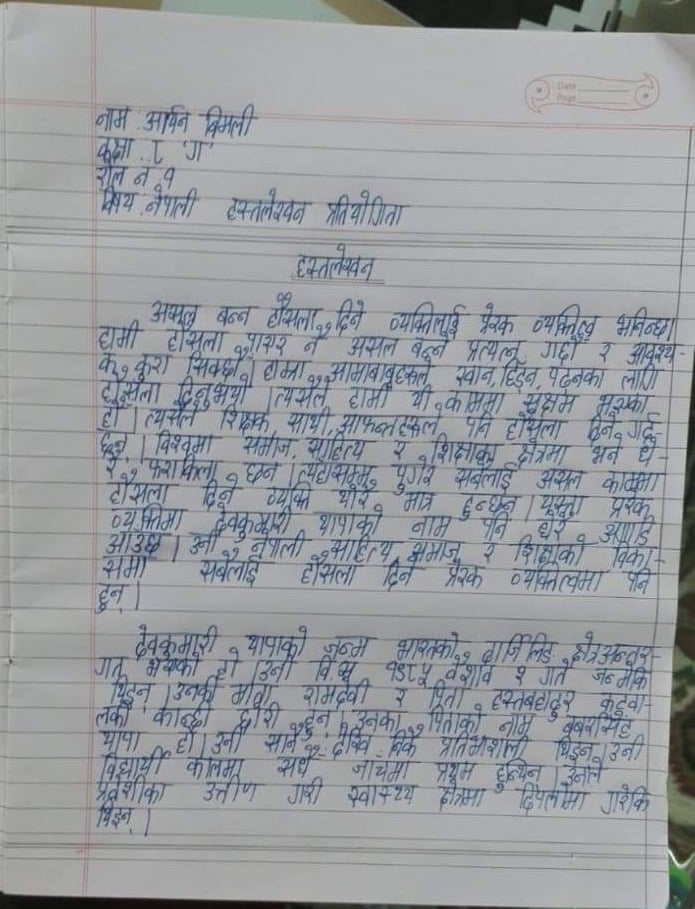 Date
Page
नाम . आर्यन विमली
कक्षा . ८ 'ग'
रोल न . १
विषय . नेपाली हस्तलेखन प्रतियोगिता
हस्तलेखन
असल बन्न हौसला दिने व्यक्तिलाई प्रेरक व्यक्तित्व भनिन्छ।
हामी हौसला पाएर नै असल बन्ने प्रत्यत्न गर्छौ र आवश्य-
क कुरा सिक्छौ। हाम्रा आमाबाबुहरूले खान, हिड्न, पढ्नका लागि
हौसला दिनुभयो। त्यसैले हामी यी काममा सक्षम भएका
हौ। त्यसैले शिक्षक, साथी, आफन्तहरूले पनि हौसला दिने गर्द-
छन्। विश्वमा समाज, साहित्य र शिक्षाका क्षेत्रमा भने धे-
रै फराकिला छन। त्यहाँसम्म पुगेर सबैलाई असल काममा
हौसला दिने व्यक्ति थोरै मात्र हुन्छन। यस्ता प्रेरक
व्यक्तिमा देवकुमारी थापाको नाम पनि धेरै अगाडि
आउछ। उनी नेपाली साहित्य, समाज र शिक्षाको विका-
समा सबैलाई हौसला दिने प्रेरक व्यक्तित्वमा पनि
हुन्।
देवकुमारी थापाको जन्म भारतको दार्जिलिङ क्षेत्रअन्तर-
गत भएको हो। उनी वि.स १९८५ वैशाख २ गते जन्मेकि
थिइन्। उनकी माता रामदेवी र पिता हस्तबहादुर कटुवा-
लकी कान्छी छोरी हुन्। उनका पिताको नाम बबरसिंह
थापा हो। उनी सानै देखि निकै प्रतिभाशाली थिइन्। उनी
विद्यार्थी कालमा सधै जाचमा प्रथम हुन्थिन। उनले
प्रवेशीका उत्तीण गरी स्वास्थ्य क्षेत्रमा दिपलोमा गरेकि
थिइन्।